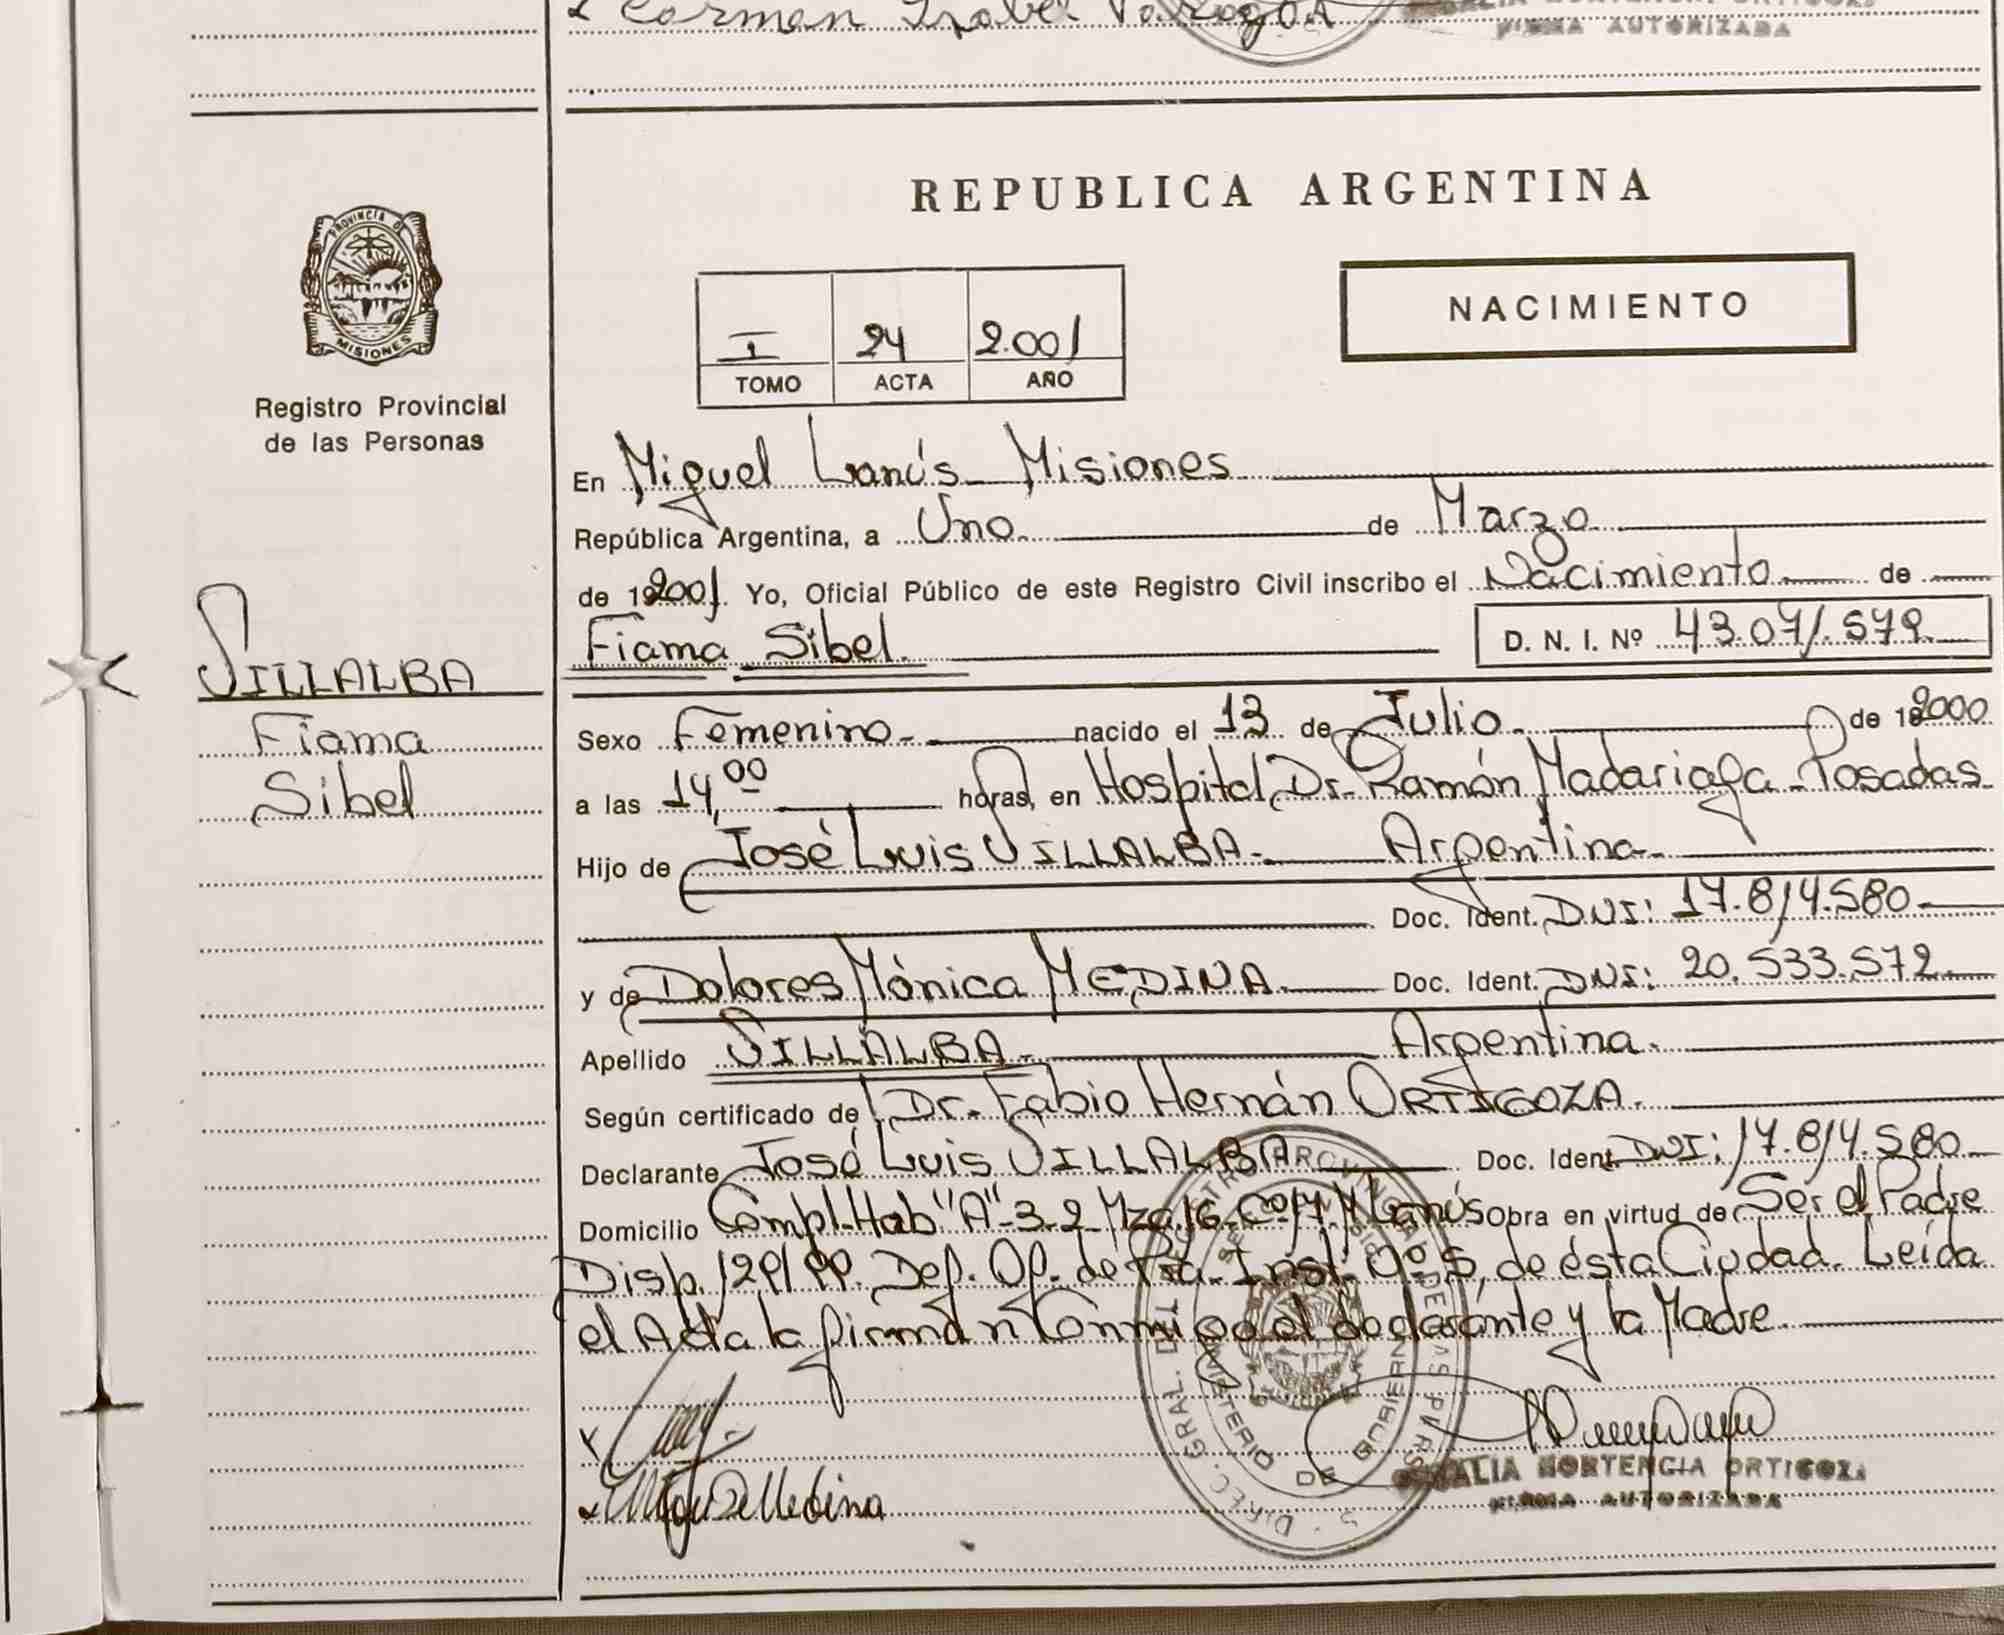 Carmen Isabel
FIRMA AUTORIZADA
PROVINCIA DE
MISIONES
Registro Provincial
de las Personas
REPUBLICA ARGENTINA
NACIMIENTO
I 24 2.001
TOMO ACTA AÑO
En Miguel Lanús - Misiones
República Argentina, a Uno de Marzo
de 192001. Yo, Oficial Público de este Registro Civil inscribo el Nacimiento de
Fiama Sibel. D. N. I. Nº 43.071.579
VILLALBA
Fiama
Sibel
Sexo Femenino - nacido el 13 de Julio. de 192000
a las 14,00 horas, en Hospital Dr. Ramón Madariaga - Posadas
Hijo de José Luis VILLALBA. Argentina.
Doc. Ident. DNI: 17.814.580
y de Dolores Mónica MEDINA. Doc. Ident. DNI: 20.533.572
Apellido VILLALBA. Argentina.
Según certificado de Dr. Fabio Hernán ORTIGOZA.
Declarante José Luis VILLALBA Doc. Ident. DNI: 17.814.580
Domicilio Compl. Hab "A" - 3-2 Mza 16 Lanús Obra en virtud de Ser el Padre
Disp. Def. Of. de Inst. Nº 5, de ésta Ciudad. Leída
el Acta la firman Conmigo el declarante y la Madre
Medina
HORTENCIA ORTIGOZA
FIRMA AUTORIZADA
DIREC. GRAL. DEL REGISTRO PROVINCIAL DE LAS PERS.
MINISTERIO DE GOBIERNO